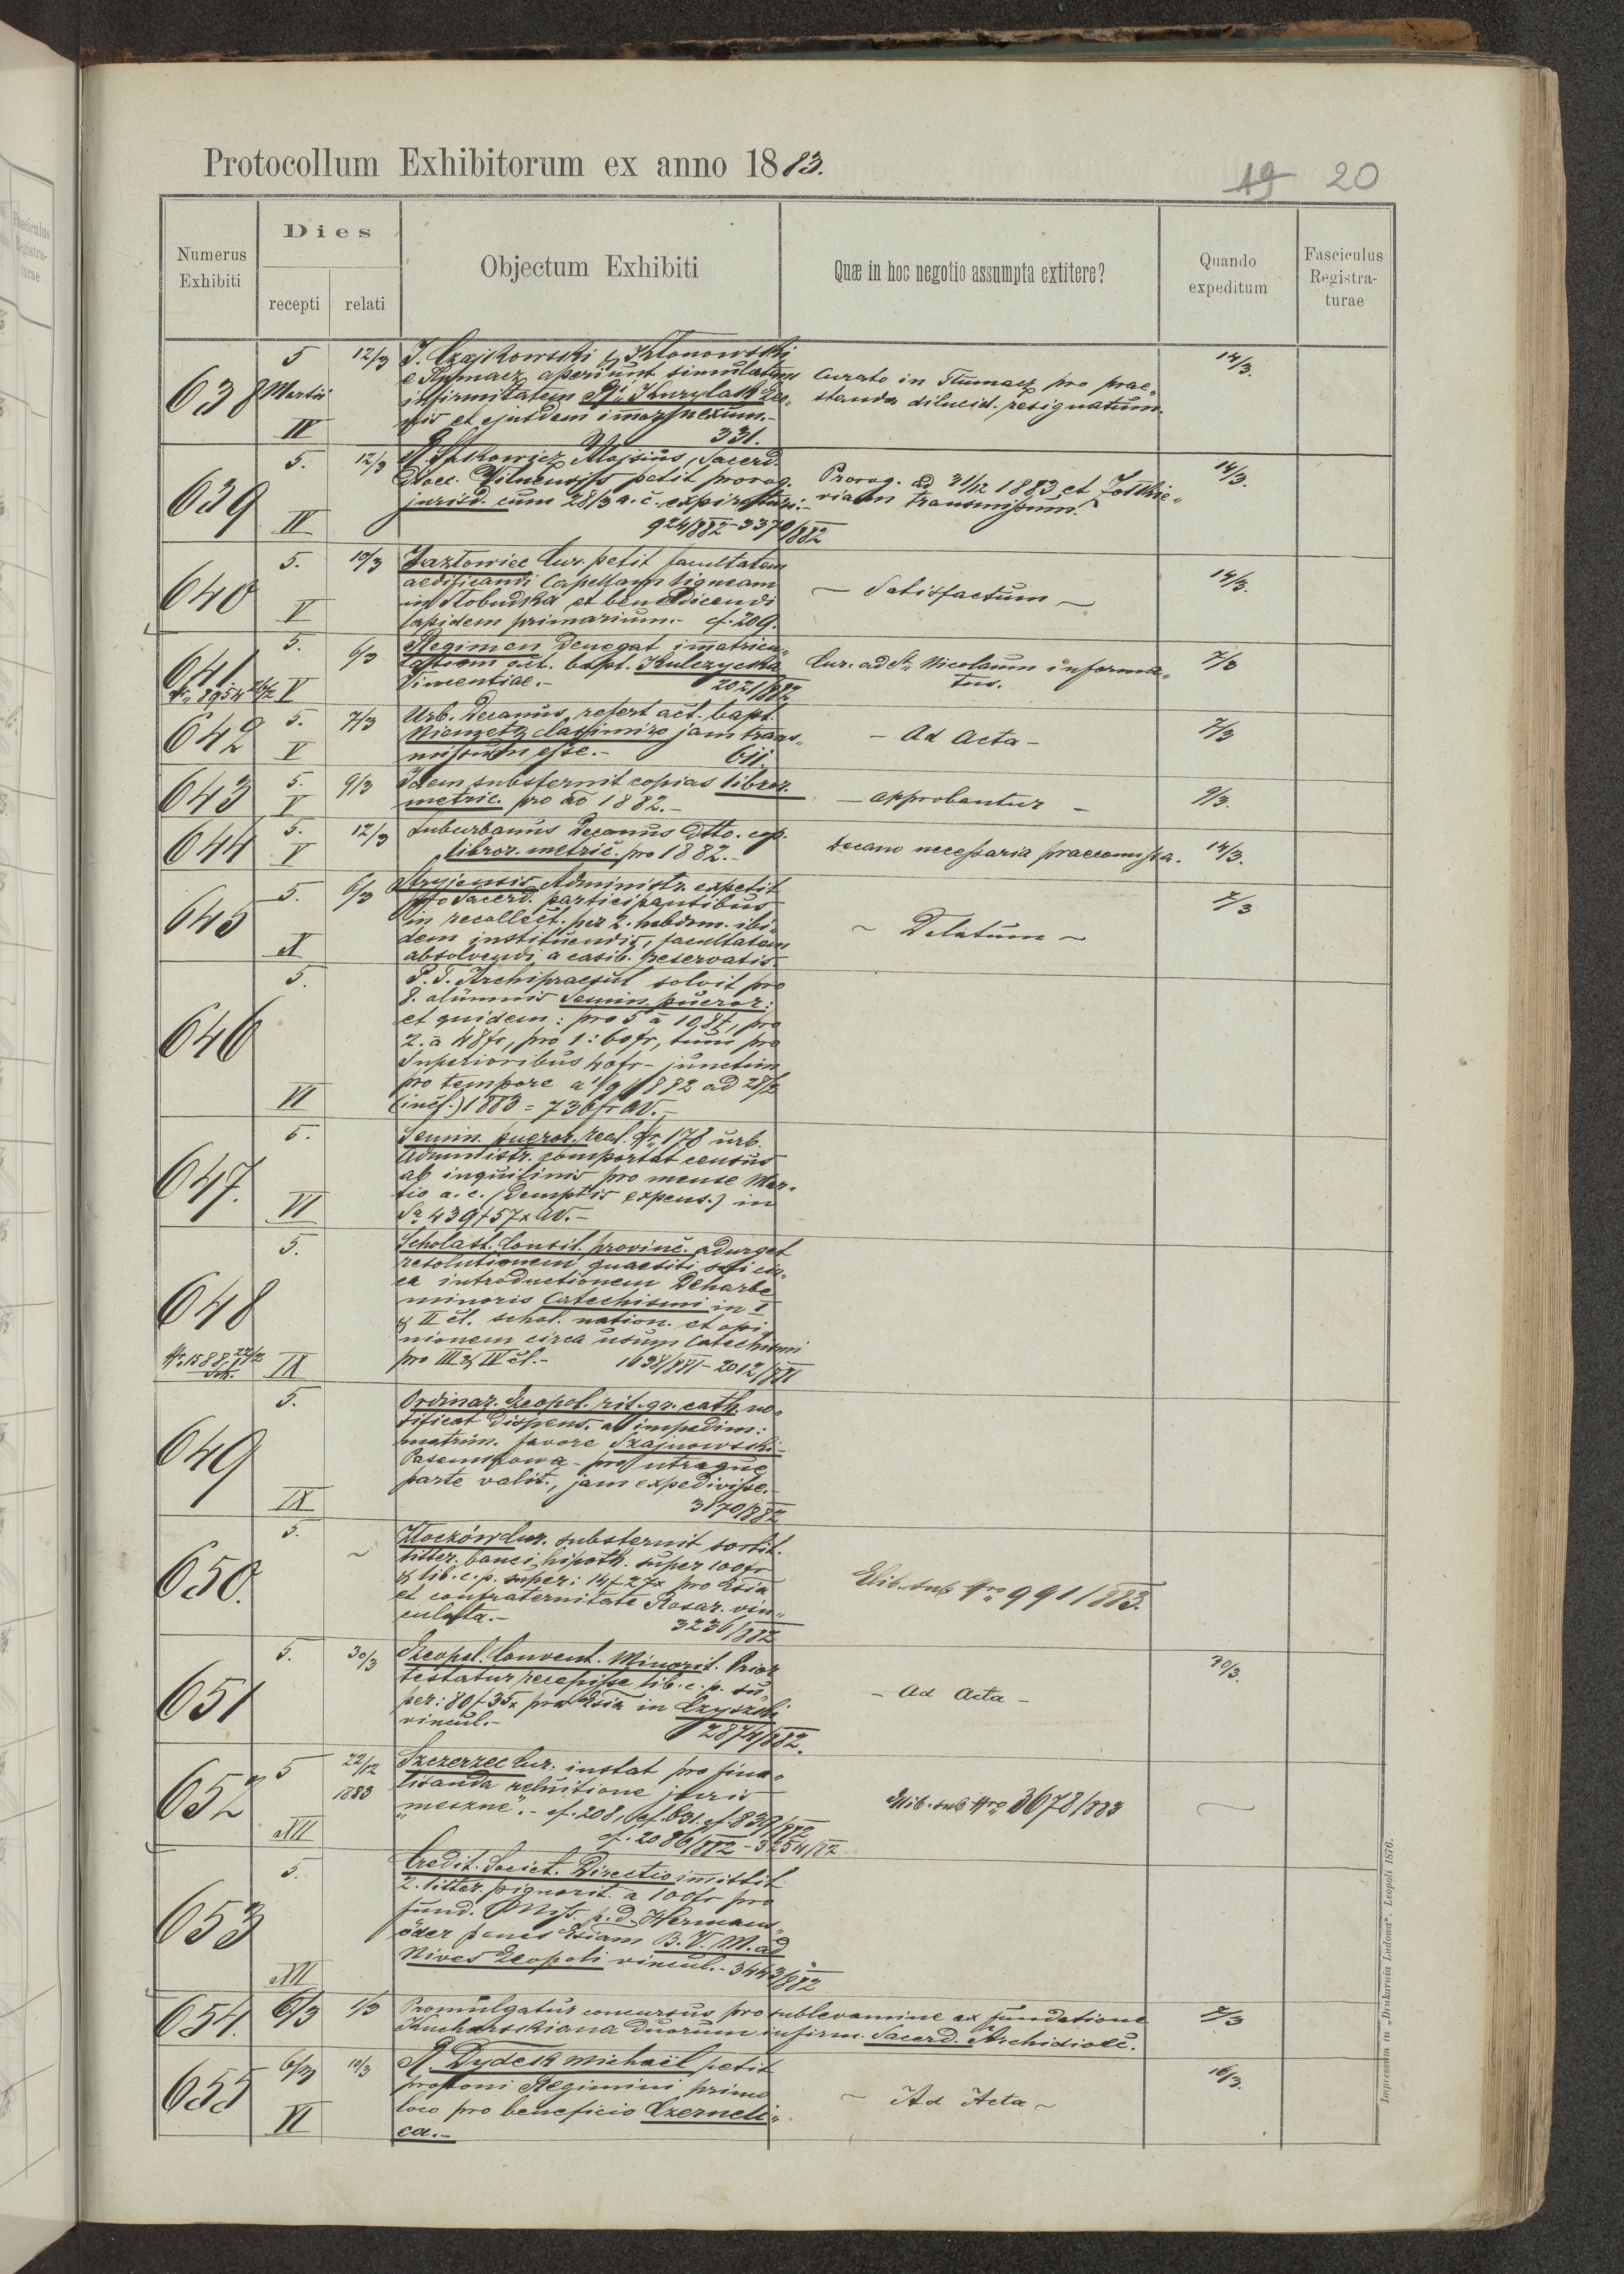 Protocollum Exhibitorum ex anno 1883.
19 20
Numerus Exhibiti
Dies
recepti
relati
Objectum Exhibiti
Quæ in hoc negotio assumpta extitere?
Quando expeditum
Fasciculus Registra-
turae
638
5 Martii
IV
12/3
J. Czajkowski & Klonowski
e Tłumacz aperiunt simulatam
infirmitatem Ri Kurylak
et ejusdem
331.
Curato in Tłumacz pro prae„
standa dilucid. resignatum.
14/3.
639
5.
IV
12/3
Aloisius, Sacerd.
Dioec. Vilnensis petit prorog.
jurisd. cum 28/3 a. c. expiraturi.-
924/882-3370/882
Prorog. ad 31/12 1883 et Żółkie„
viam transmissum.
14/3.
640
5.
V
10/3
Jazłowiec Cur. petit facultatem
aedificandi Capellam ligneam
in Słobudka et benedicendi
lapidem primarium.- cf. 209.
- Satisfactum -
14/3.
641
5.
V
6/3
Regimen denegat immatricu„
lationem act. bapt. Kulczycka
Vincentiae.- 2021/882
Cur. ad St. Nicolaum informa„
tus.
7/3
642
5.
V
7/3
Urb. Decanus refert act. bapt.
Niemetz Casimiro jam trans„
missum esse.- 611.
- Ad Acta -
7/3
643
5.
V
9/3
Idem substernit copias libror.
metric. pro ao 1882.-
- approbantur -
9/3.
644
5.
V
12/3
Suburbanus Decanus dtto. cop.
libror. metric. pro 1882.-
Decano necessaria praecomissa.
14/3.
645
5.
X
6/3
Stryjensis Administr. expetit
pro Sacerd. participantibus
in recollect. per 2. hebdom. ibi„
dem instituendis, facultatem
absolvendi a casib. reservatis.
~ Delatum ~
7/3
646
5.
VI
P. T. Archipraesul solvit pro
8. alumnis Semin. pueror:
et quidem: pro 5 à 108f, pro
2. à 48fr, pro 1: 60fr, tum pro
Superioribus 40fr - junctim
pro tempore a 1/9 1882 ad 28/2
(incl.) 1883 = 736fr AV.-
647.
5.
VI
Semin. pueror. real. Nr. 178 urb.
Administr. comportat census
ab inquilinis pro mense Mar„
tio a. c. (demptis expens.) in
Sa 439f 57x AV.-
648
Nr. 1588. 22/2
5.
IX
Scholast. Consil. provinc. adurget
resolutionem quaesiti sui cir„
ca introductionem Deharbe
minoris Catechismi in I
& II cl. schol. nation. et opi„
nionem circa usum Catechismi
pro III & IV cl.- 1638/881-2012/881
649
5.
IX
Ordinar. Leopol. rit. gr. cath. no„
tificat dispens. ab impedim:
matrim. favore Szajnowski-
pro utraque
parte valit., jam expedivisse.
3170/882
650.
5.
~
Złoczów Cur. substernit sortit.
litter. banci hipoth. super 100fr
& lib. c. p. super: 14f 27x pro Esia
et confraternitate Rosar. vin„
culata.-
3236/882
Elib. sub Nro 991/883.
651
5.
30/3
Leopol. Convent. Minorit. Prior
testatur recepisse lib. c. p. su„
per: 80f 35x pro Esia in Czyszki
vincul.-
2874/882.
- Ad Acta -
30/3.
652
5
XII
22/12
1883
Szczerzec Cur. instat pro fina„
lisanda reluitione juris
„meszne".- cf. 208, cf. 631. cf. 839/882
cf. 2086/882-3254/82
Elib. sub Nro 3678/883
653
5.
XII
Credit. Societ. Directio immittit
2. litter. pignorit. à 100fr pro
fund. Miss. p. d. Hermans„
öder penes Esiam B. V. M. ad
Nives Leopoli vincul.- 3443/882
654.
6/3
1/3
Promulgatur concursus pro sublevamine ex fundatione
Kucharskiana duorum infirm. Sacerd. Archidioec.
7/3
655
6/3
VI
10/3
R. Dydek Michaël petit
proponi Regimini primo
loco pro beneficio Czerneli„
ca.-
~ Ad Acta ~
16/3.
Impressum in „Drukarnia Ludowa". Leopoli 1876.